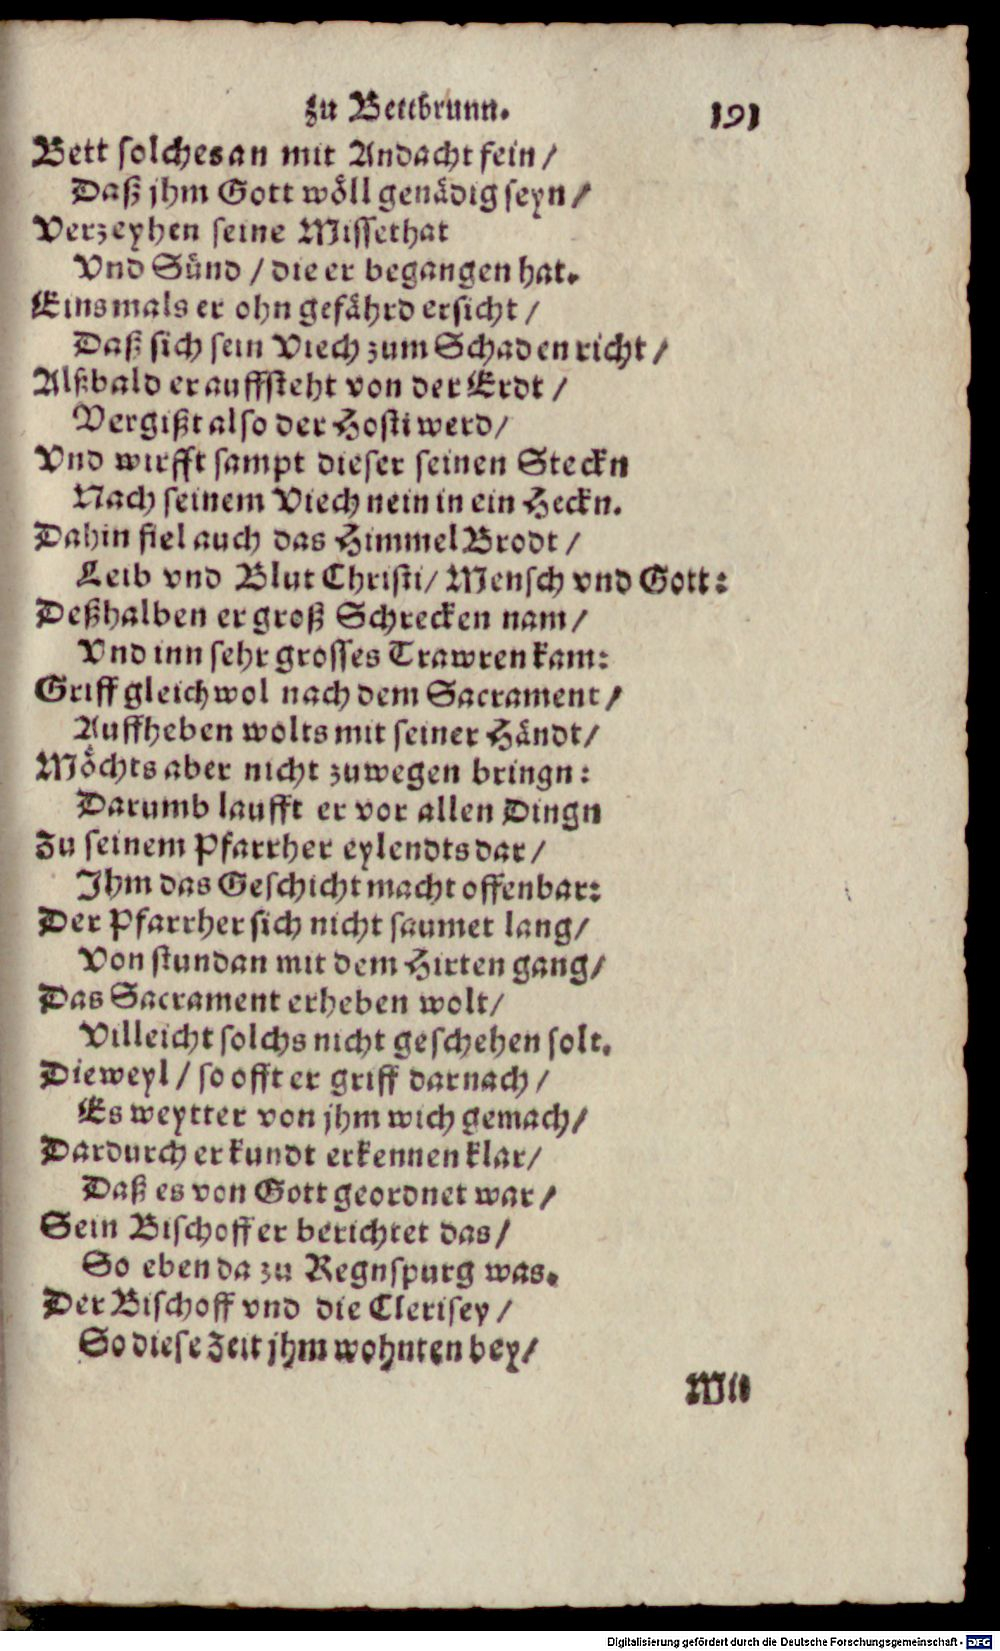 zu Bettbrunn. 191
Bett solches an mit Andacht fein /
Daß jhm Gott wöll genädig seyn /
Verzeyhen seine Missethat
Vnd Sünd / die er begangen hat.
Einsmals er ohn gefährd ersicht /
Daß sich sein Viech zum Schaden richt /
Alßbald er auffsteht von der Erdt /
Vergißt also der Hosti werd /
Vnd wirfft sampt dieser seinen Steckn
Nach seinem Viech nein in ein Heckn.
Dahin fiel auch das Himmel Brodt /
Leib vnd Blut Christi / Mensch vnd Gott:
Deßhalben er groß Schrecken nam /
Vnd inn sehr grosses Trawren kam:
Griff gleichwol nach dem Sacrament /
Auffheben wolts mit seiner Händt /
Möchts aber nicht zuwegen bringn:
Darumb laufft er vor allen Dingn
Zu seinem Pfarrher eylendts dar /
Ihm das Geschicht macht offenbar:
Der Pfarrher sich nicht saumet lang /
Von stundan mit dem Hirten gang /
Das Sacrament erheben wolt /
Villeicht solchs nicht geschehen solt.
Dieweyl / so offt er griff darnach /
Es weytter von jhm wich gemach /
Dardurch er kundt erkennen klar /
Daß es von Gott geordnet war /
Sein Bischoff er berichtet das /
So eben da zu Regnspurg was.
Der Bischoff vnd die Clerisey /
So diese Zeit jhm wohnten bey /
Mit
Digitalisierung gefördert durch die Deutsche Forschungsgemeinschaft - DFG